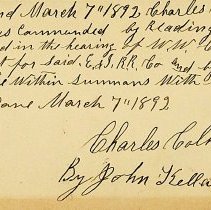 nd March 7" 1892 Charles
as Commanded by Reading
d in the hearing of W.W.
t for said. E. & S. RR. Co and b
he Within Summans With
ane March 7" 1892
Charles Col
By John Kella